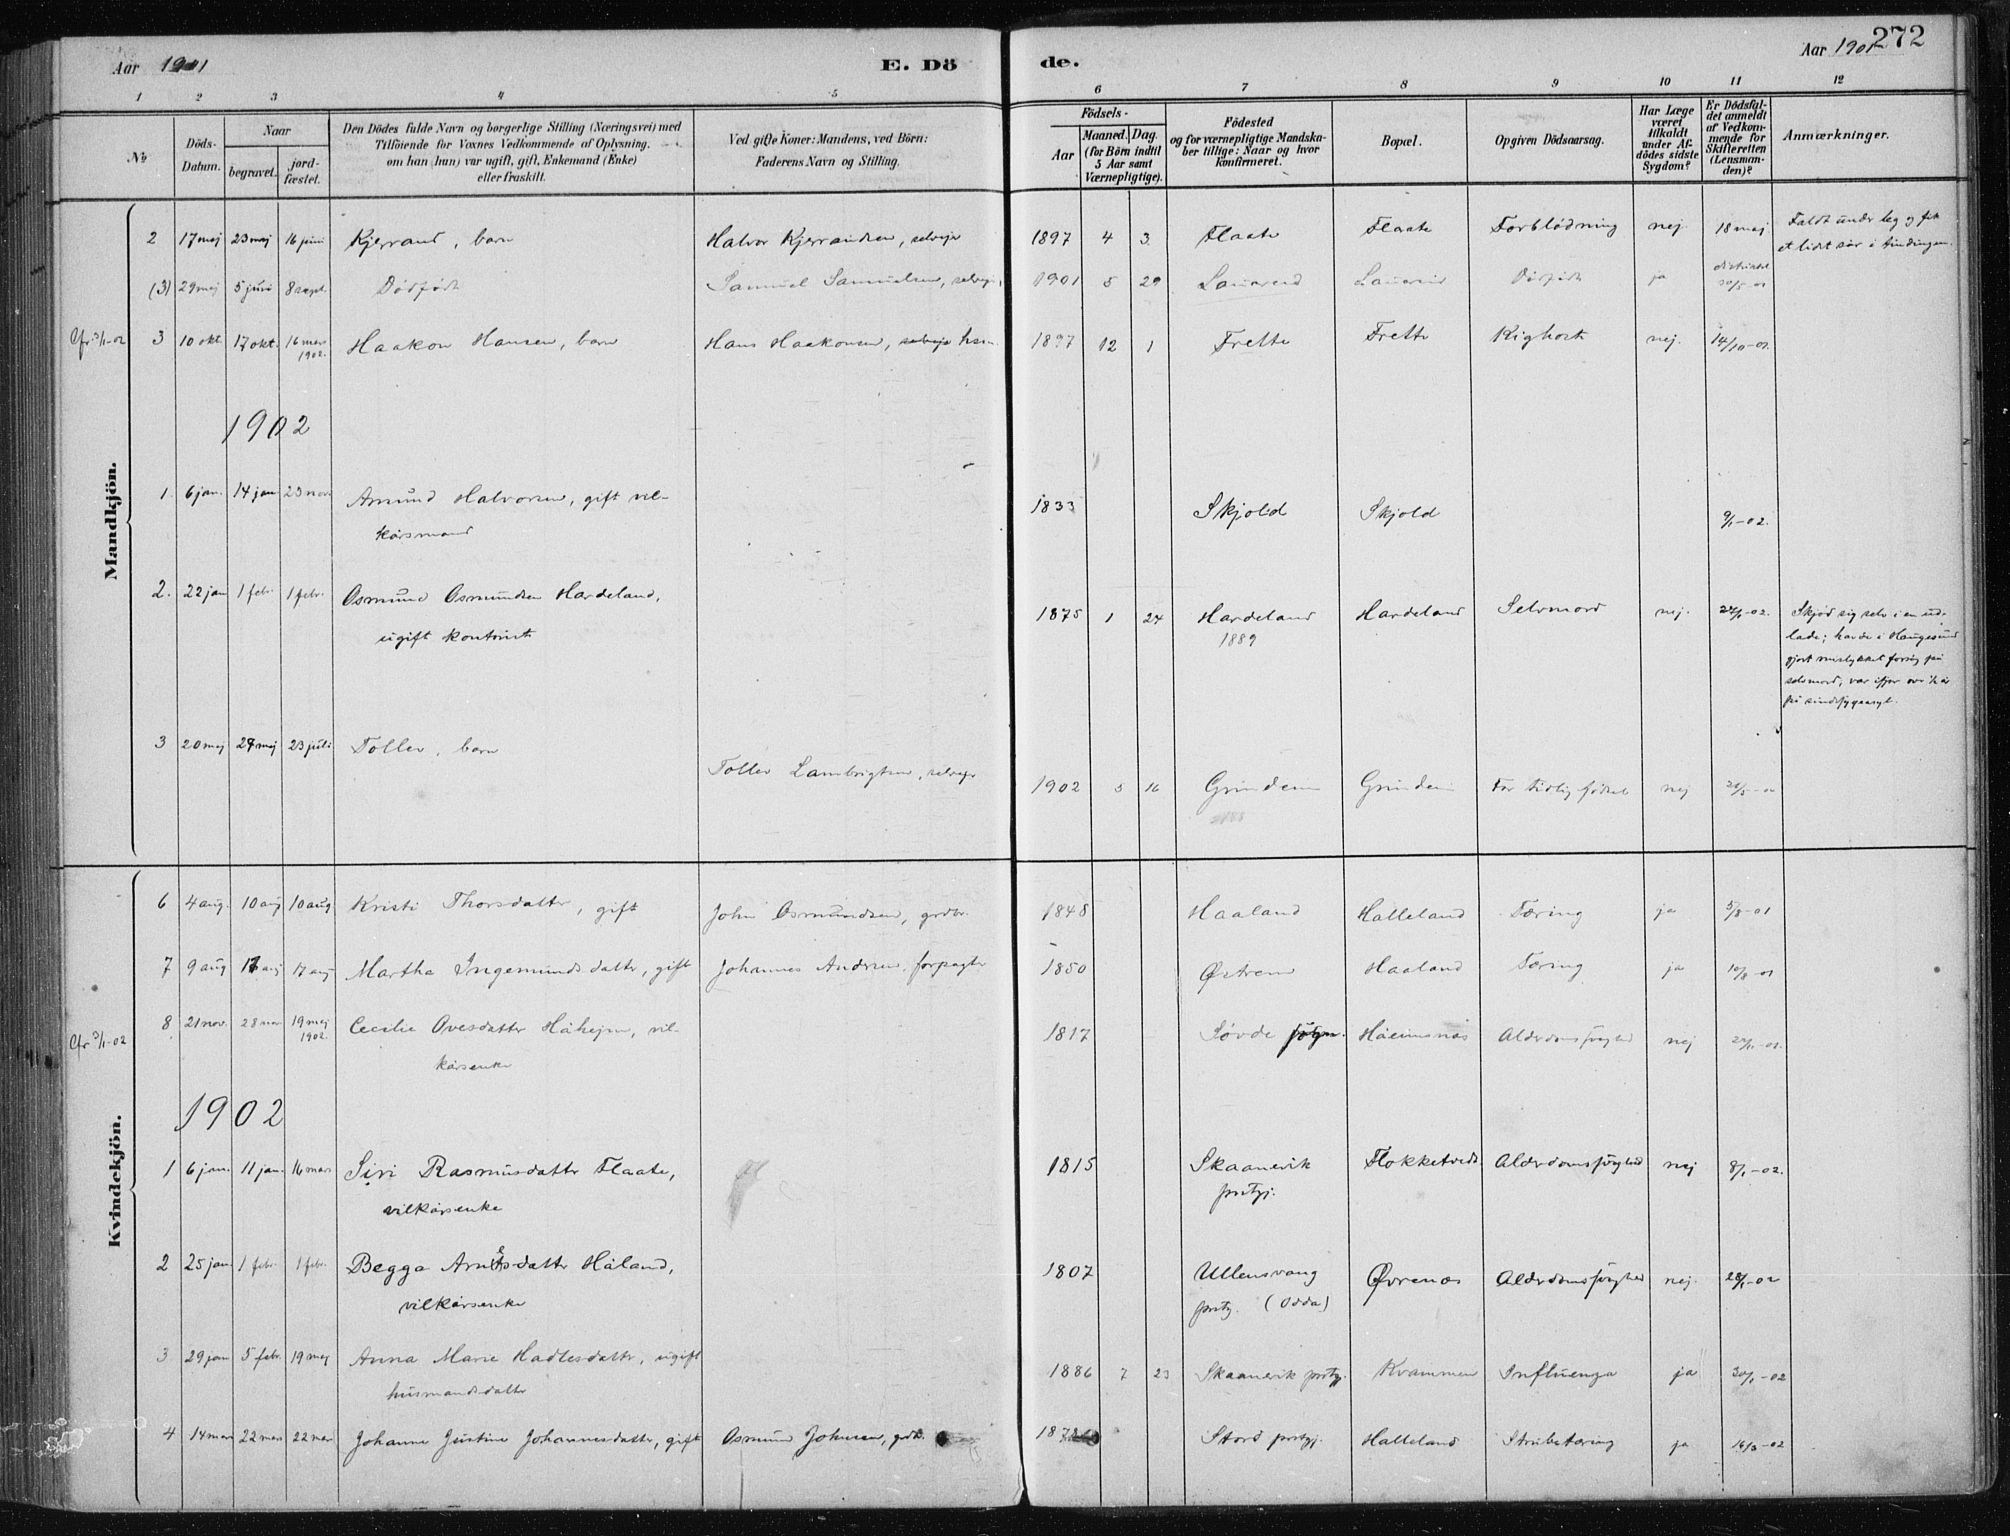 272
Aar 1901 E. Dö de. Aar 1901
1 2 3 4 5 6 7 8 9 10 11 12
No Döds-Datum. Naar begravet. jord-fæstet. Den Dödes fulde Navn og borgerlige Stilling (Næringsvei) med Tilföiende for Voxnes Vedkommende af Oplysning. om han (hun) var ugift, gift, Enkemand (Enke) eller fraskilt. Ved gifte Koner: Mandens, ved Börn: Faderens Navn og Stilling. Födsels- Aar Maaned. Dag. (for Börn indtil 5 Aar samt Værnepligtige). Födested og for værnepligtige Mandskaber tillige: Naar og hvor konfirmeret. Bopæl. Opgiven Dödsaarsag. Har Læge været tilkaldt under Afdödes sidste Sygdom? Er Dödsfaldet anmeldt af Vedkommende for Skifteretten (Lensmanden)? Anmærkninger.
Mandkjön.
2 17 maj 23 maj 16 juni Kjerrand, barn Halvor Kjerrandsen, selvejer 1897 4 3 Flaate Flaate Forblödning nej 18 maj Faldt under leg og fik
et lidet sår i tindingen.
(3) 29 maj 5 juni 8 sept. Dödfödt Samuel Samuelsen, selvejer 1901 5 29 Dödfödt ja 30/5-01
Cfr. 3/1-02 3 10 okt. 17 okt. 16 mars 1902. Haakon Hansen, barn Hans Haakonsen, 1897 12 1 Frette Frette Kighoste nej. 14/10-01.
1902
1. 6 jan. 14 jan 23 nov. Amund Halvorsen, gift vil- 1833 Skjold Skjold 9/1-02.
kårsmand
2. 22 jan 1 febr. 1 febr. Osmund Osmundsen Hardeland, 1875 1 24 Hardeland Hardeland Selvmord nej. 24/1-02. Skjöd sig selv i en ud-
ugift kontorist 1889 lade; havde i Haugesund
gjort mislykket forsög på
selvmord, var ifjor over 1/2 år
på sindssygeasyl.
3 20 maj 27 maj 23 juli Tollev, barn
Tollev Lambrigtsen, selvejer 1902 5 16 Grinden Grinden For tidlig födsel nej
Kvindekjön.
6 4 aug. 10 aug 10 aug Kristi Thorsdatter, gift John Osmundsen, grdbr. 1848 Haaland Halleland Tæring ja 5/8-01
7 9 aug 17 aug 17 aug Martha Ingemundsdatter, gift Johannes Andersen, forpagter 1850 Østrem Haaland Tæring ja 10/8-01
Cfr. 3/1-02 8 21 nov. 28 nov 19 maj 1902. Cecilie Ovesdatter, vil- 1817 Sövde sogn. Alderdomssvaghed nej
kårsenke
1902
1 6 jan. 11 jan. 16 mars Siri Rasmusdatter Flaate, 1815 Skaanevik Flokketvedt Alderdomssvaghed nej 8/1-02.
vilkårsenke prstgj.
2 25 jan 1 febr. 1 febr. Begga Arnesdatter Håland, 1807 Ullensvang Øvrenæs Alderdomssvaghed nej. 28/1-02
vilkårsenke prstgj. (Odda)
3 29 jan 5 febr. 19 maj Anna Marie Hadlesdatter, ugift 1886 7 23 Skaanevik prstgj. Kvammen Influenza ja 30/1-02
husmandsdatter
4 14 mars 22 mars 22 mars Johanne Justine Johannesdatter, gift Osmund Johnsen, grdb. Stord prstgj. Halleland Strubetæring ja 16/3-02